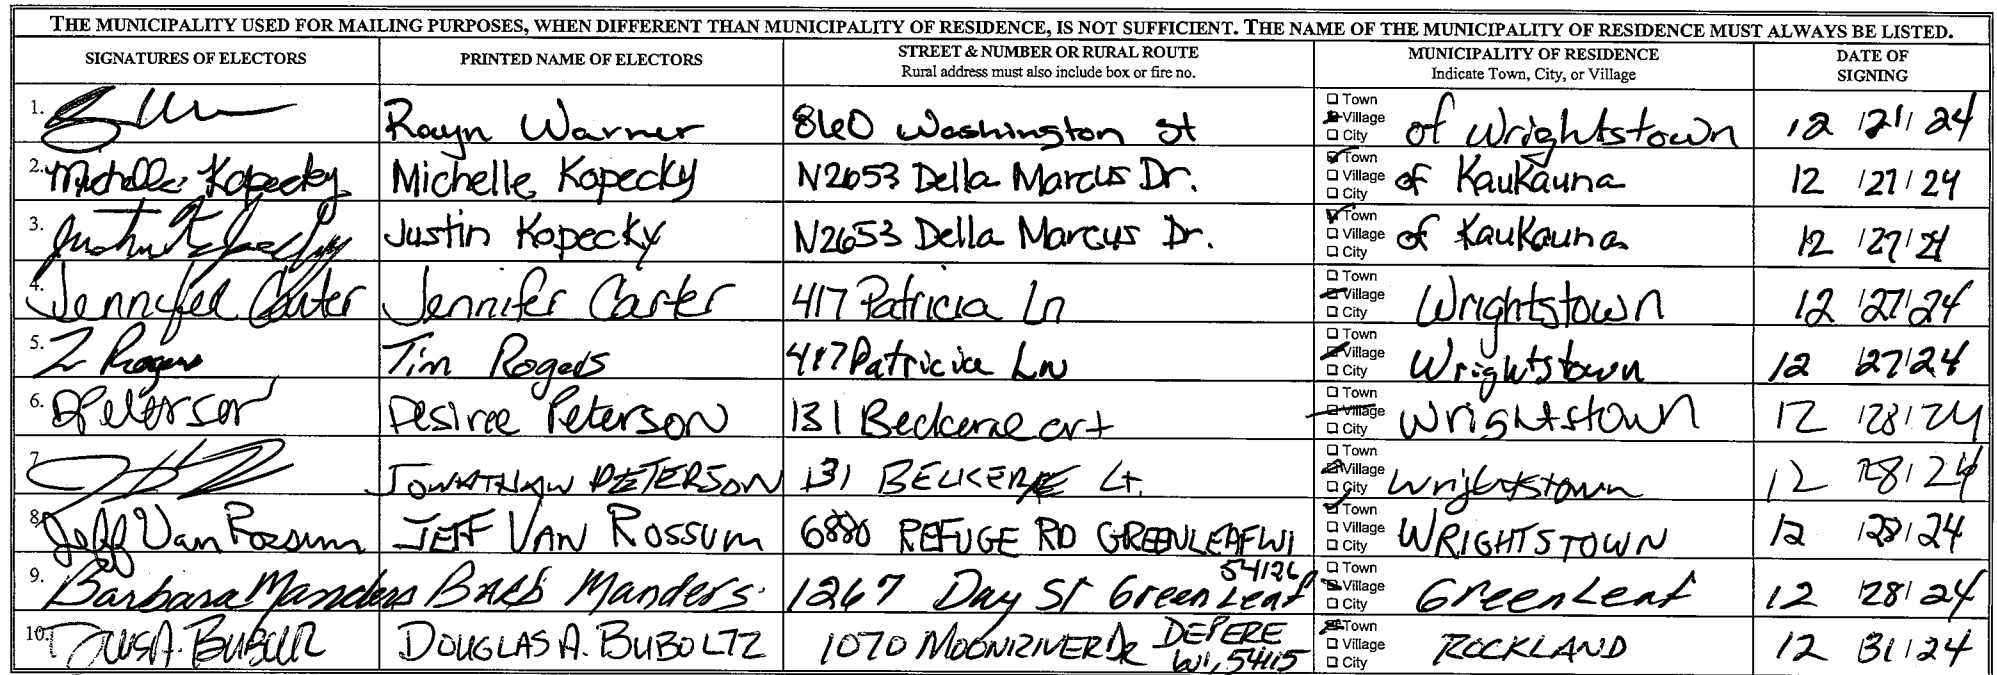 THE MUNICIPALITY USED FOR MAILING PURPOSES, WHEN DIFFERENT THAN MUNICIPALITY OF RESIDENCE, IS NOT SUFFICIENT. THE NAME OF THE MUNICIPALITY OF RESIDENCE MUST ALWAYS BE LISTED.
SIGNATURES OF ELECTORS PRINTED NAME OF ELECTORS STREET & NUMBER OR RURAL ROUTE Rural address must also include box or fire no. MUNICIPALITY OF RESIDENCE Indicate Town, City, or Village DATE OF SIGNING
1. Rayn Warner 860 Washington st Town Village City of Wrightstown 12 /21/ 24
2. Michelle Kopecky Michelle Kopecky N2653 Della Marcus Dr. Town Village City of Kaukauna 12 /27/ 24
3. Justin Kopecky N2653 Della Marcus Dr. Town Village City of Kaukauna 12 /27/
4. Jennifer Carter Jennifer Carter 417 Patricia Ln Town Village City Wrightstown 12 /27/ 24
5. T Rogers Tim Rogers 417 Patricia Ln Town Village City Wrightstown 12 /27/ 24
6. D Peterson Desiree Peterson 131 Town Village City Wrightstown 12 /28/ 24
7. JONATHAN PETERSON 131 Town Village City Wrightstown 12 /28/ 24
8. Jeff Van Rossum JEFF VAN ROSSUM 6880 REFUGE RD GREENLEAF WI Town Village City WRIGHTSTOWN 12 /28/ 24
9. Barbara Manders Barb Manders 1267 Day St Greenleaf 54126 Town Village City Greenleaf 12 /28/ 24
10. DOUGLAS A. BUBOLTZ 1070 MOONRIVER DR DEPERE WI, 54115 Town Village City ROCKLAND 12 /31/ 24